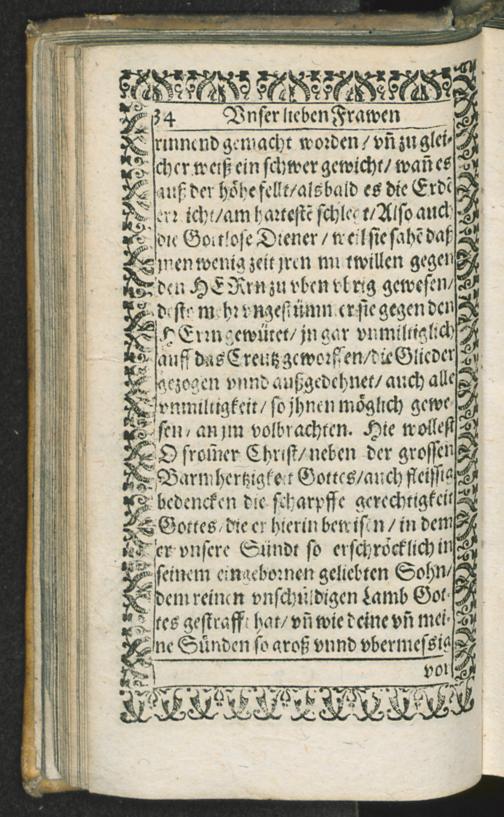 34 Vnser lieben Frawen
rinnend gemacht worden / vn̄ zu glei-
cher weiß ein schwer gewicht / wan̄ es
auß der höhe fellt / als bald es die Erdē
err icht / am hartestē schlegt / Also auch
die Gottlose Diener / weil sie sahē daß
jnen wenig zeit jren mutwillen gegen
den HERrn zu vben vbrig gewesen /
deste mehr vngestümmer sie gegen den
HErrn gewütet / jn gar vnmiltiglich
auff das Creutz geworffen / die Glieder
gezogen vnnd außgedehnet / auch alle
vnmiltigkeit / so jhnen möglich gewe-
sen / an jm volbrachten. Hie wollest
O from̄er Christ / neben der grossen
Barmhertzigkeit Gottes / auch fleissig
bedencken die scharpffe gerechtigkeit
Gottes / die er hierin bewisen / in dem
er vnsere Sündt so erschröcklich in
seinem eingebornen geliebten Sohn /
dem reinen vnschuldigen Lamb Got-
tes gestrafft hat / vn̄ wie deine vn̄ mei-
ne Sünden so groß vnnd vbermessig
vor